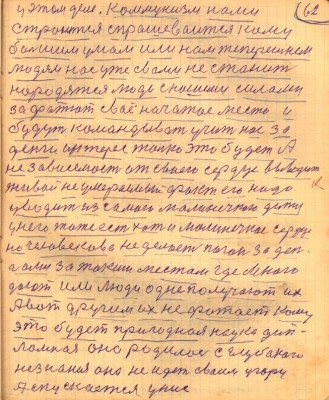 62
у этом деле. Коммунизм нами
строится спрашевается кому
большим умам или нам теперешнем
людям нас уже свами не станит
народятся людь с нашими силами
за фатают своё начатое место и
будут командывать учит нас за
денги интерес только это будет А
не зависемост от своего сердце выводит
живой не умерамый факт его надо
уводит из самого малинечкаго дитя
у него тоже ест хот и малиничкое сердце
но человеково не делает погон за ден-
гами за такими местам где много
дают или люди одне получают их
А вот другим их не фатает кому
это будет природная наука дип-
ломная она родилас с глубакого
незнания она не идет своим
А спускается унис